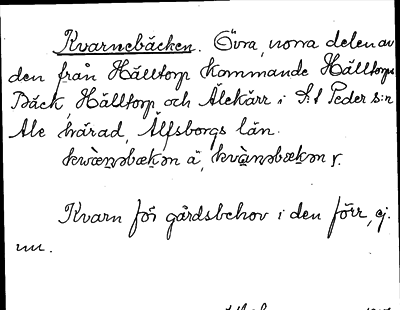 Kvarnebäcken. Övra, norra delen av
den från Hälltorp kommande Hälltorps
Bäck, Hälltorp och Älekärr i S:t Peder s:n
Ale härad, Älfsborgs län.
Kvarn för gårdsbehov i den förr, ej
nu.